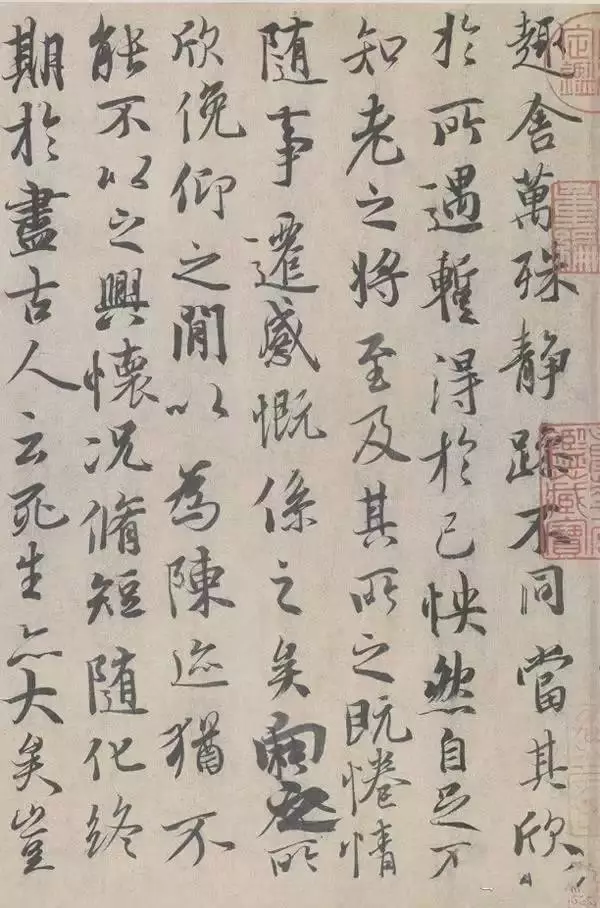 趣舍萬殊静躁不同當其欣
於所遇暫得於己怏然自足不
知老之將至及其所之既惓情
隨事遷感慨係之矣向之所
欣俛仰之閒以為陳迹猶不
能不以之興懷况脩短隨化終
期於盡古人云死生亦大矣豈